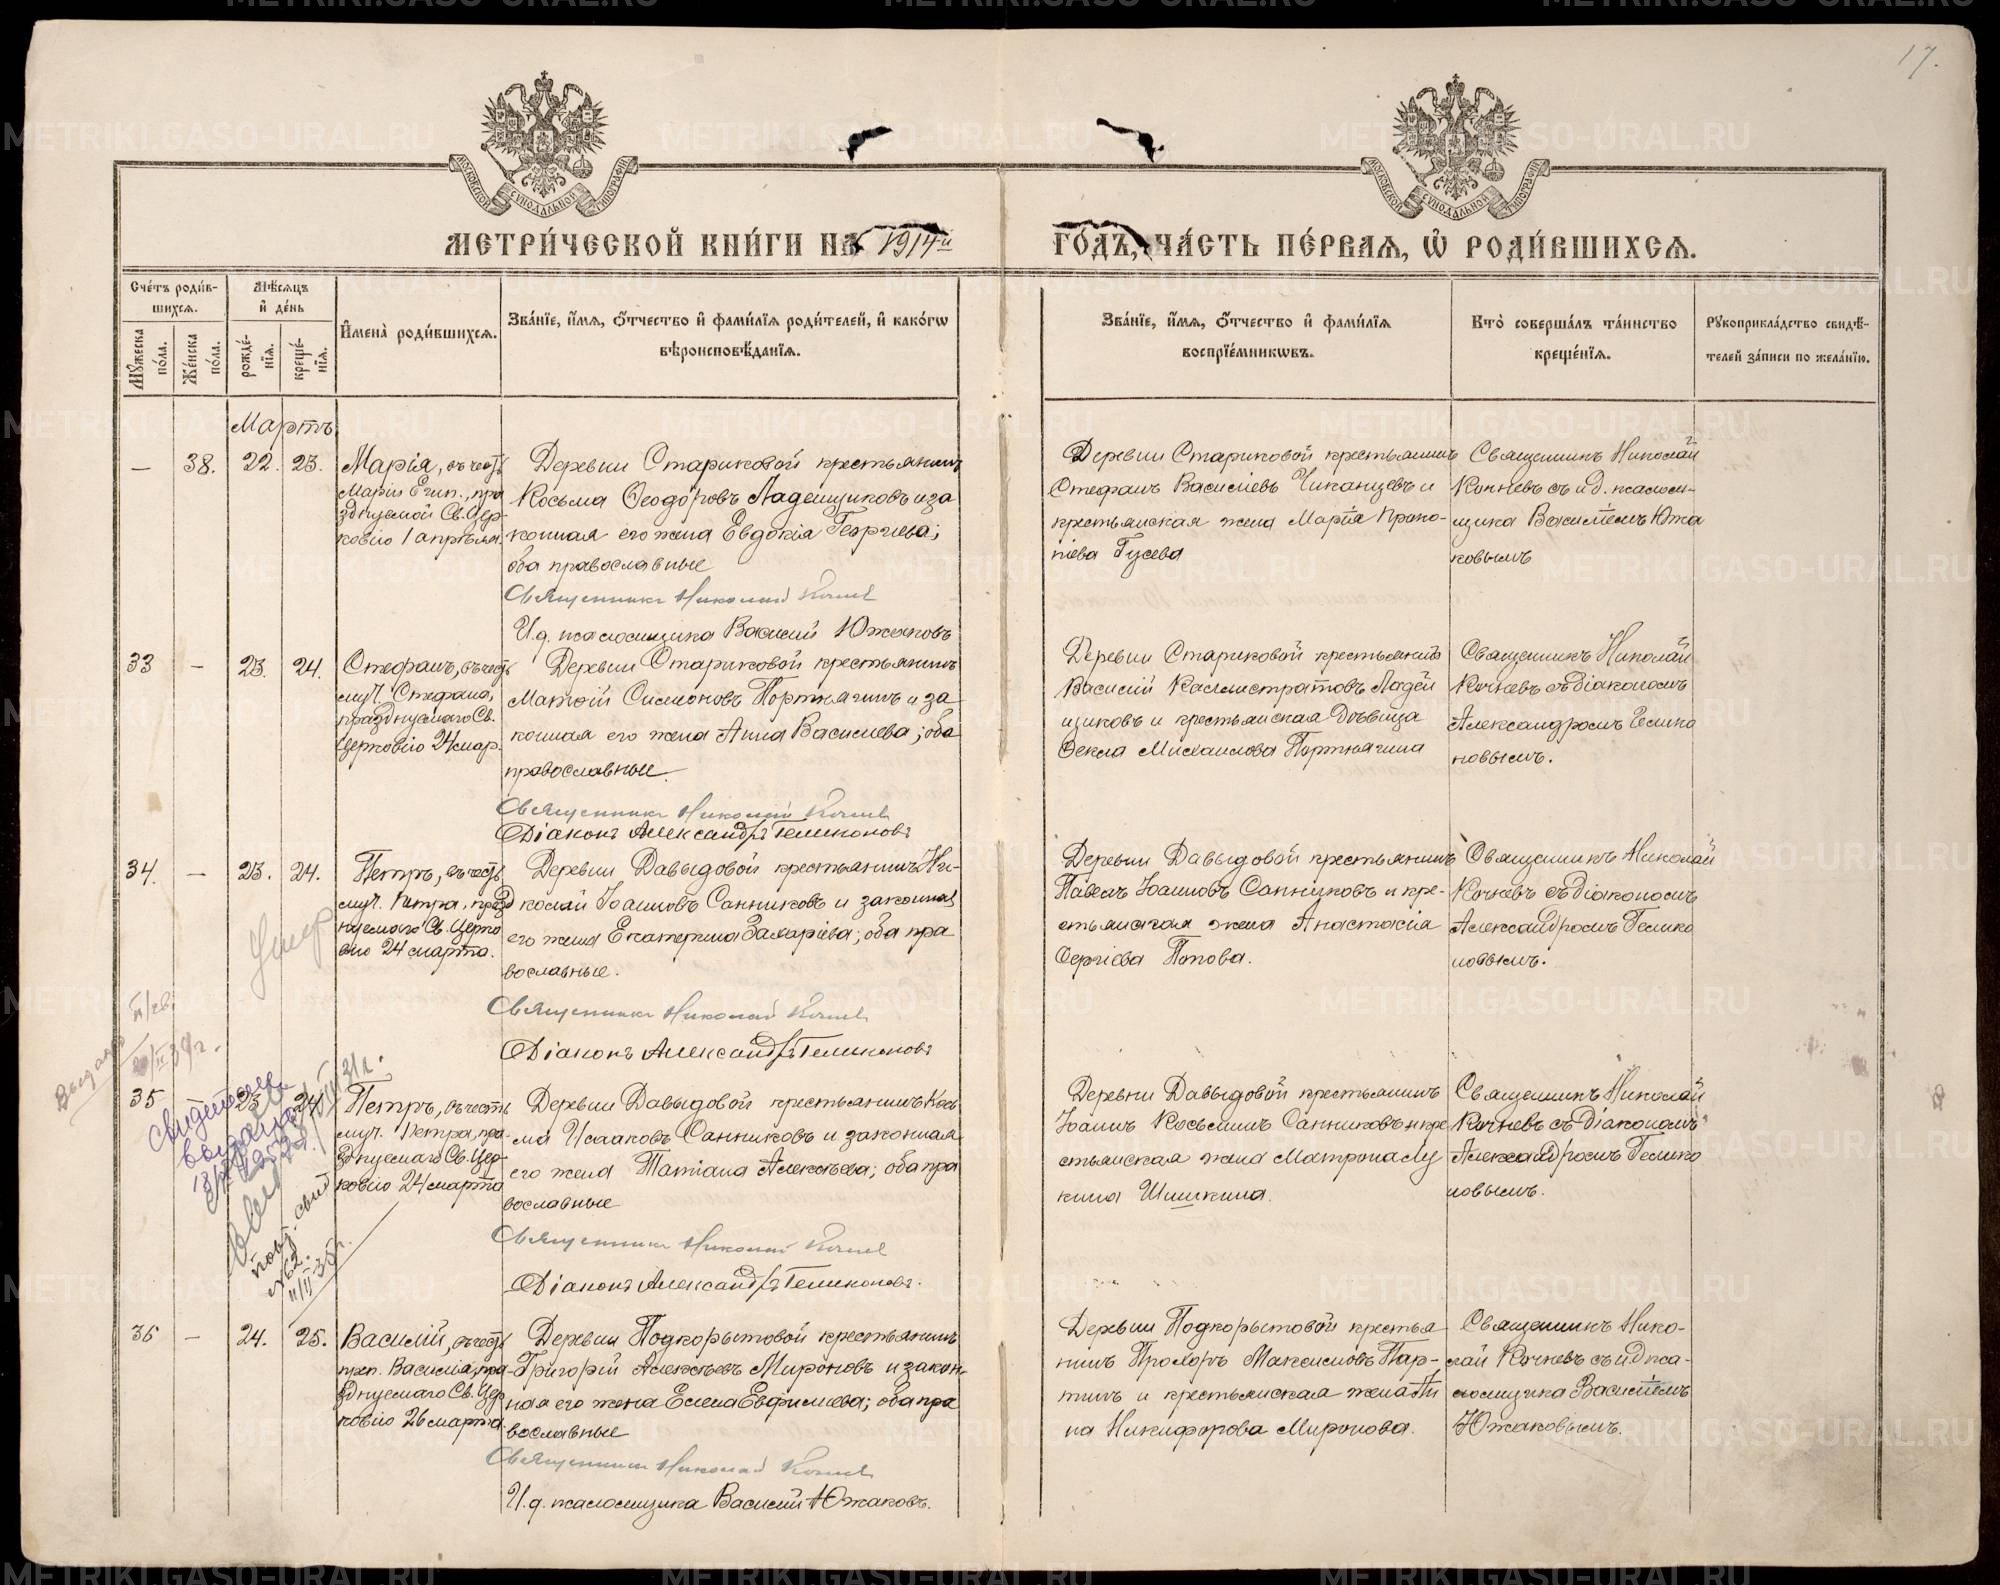 17.
МОСКОВСКОЙ СУНОДАЛЬНОЙ ТИПОГРАФІИ
МОСКОВСКОЙ СУНОДАЛЬНОЙ ТИПОГРАФІИ
МЕТРИ́ЧЕСКОЙ КНИ́ГИ НА 1914й ГО́ДЪ, ЧА́СТЬ ПЕ́РВАЯ, Ѿ РОДИ́ВШИХСЯ.
Сче́тъ роди́в-
шихся.
Мѣ́сяцъ
и҆ де́нь
Мꙋ́жеска
по́ла.
Же́нска
по́ла.
рожде́-
нїѧ.
креще́-
нїѧ.
И҆мена̀ роди́вшихся.
Зва́нїе, и҆́мя, ѻ҆́тчество и҆ фами́лїя роди́телей, и҆ како́гѡ
вѣроисповѣ́данїя.
Зва́нїе, и҆́мя, ѻ҆́тчество и҆ фами́лїя
воспрїе́мникѡвъ.
Кто̀ соверша́лъ та́инство
креще́нїя.
Рꙋкоприкла́дство свидѣ́-
телей за́писи по жела́нїю.
Мартъ
— 38. 22. 23.
Марія, въ честь
Маріи Егип., пра
зднуемой Св. Цер-
ковію 1 апрѣля.
Деревни Стариковой крестьянинъ
Косьма Ѳеодоровъ Ладейщиковъ и за
конная его жена Евдокія Георгіева;
оба православные
Священникъ Николай Кочневъ
И.д. псаломщика Василій Южаковъ
Деревни Стариковой крестьянинъ
Стефанъ Василіевъ Чиканцевъ и
крестьянская жена Марія Проко-
піева Гусева
Священникъ Николай
Кочневъ съ и.д. псалом-
щика Василіемъ Южа
ковымъ
33 — 23. 24.
Стефанъ, въ честь
муч. Стефана,
празднуемаго Св.
Церковію 24 мар.
Деревни Стариковой крестьянинъ
Матѳій Симеоновъ Портнягинъ и за
конная его жена Анна Василіева; оба
православные.
Священникъ Николай Кочневъ
Діаконъ Александръ Геликоновъ
Деревни Стариковой крестьянинъ
Василій Каллистратовъ Ладей
щиковъ и крестьянская дѣвица
Ѳекла Михаилова Портнягина
Священникъ Николай
Кочневъ съ діакономъ
Александромъ Гелико
новымъ.
34. — 23. 24.
Умер
Петръ, въ честь
муч. Петра, празд
нуемаго Св. Церко
вію 24 марта.
Деревни Давыдовой крестьянинъ Ни-
колай Іоанновъ Санниковъ и законная
его жена Екатерина Захаріева; оба пра
вославные.
Священникъ Николай Кочневъ
Діаконъ Александръ Геликоновъ
Деревни Давыдовой крестьянинъ
Павелъ Іоанновъ Санниковъ и кре-
стьянская жена Анастасія
Сергіева Попова.
Священникъ Николай
Кочневъ съ діакономъ
Александромъ Гелико
новымъ.
35 23 24
Петръ, въ честь
муч. Петра, пра-
зднуемаго Св. Цер-
ковію 24 марта
Деревни Давыдовой крестьянинъ Кось
ма Исааковъ Санниковъ и законная
его жена Татіана Алексѣева; оба пра
вославные
Священникъ Николай Кочневъ
Діаконъ Александръ Геликоновъ.
Деревни Давыдовой крестьянинъ
Іоаннъ Косьминъ Санниковъ и кре
стьянская жена Матрона Лу
кина Шишкина.
Священникъ Николай
Кочневъ съ діакономъ
Александромъ Гелико
новымъ.
36 — 24. 25.
Василій, въ честь
преп. Василія, пра-
зднуемаго Св. Цер
ковію 26 марта
Деревни Подкорытовой крестьянинъ
Григорій Алексѣевъ Мироновъ и закон-
ная его жена Елена Евфиміева; оба пра
вославные
Священникъ Николай Кочневъ
И.д. псаломщика Василій Южаковъ.
Деревни Подкорытовой крестья
нинъ Прохоръ Максимовъ Пар-
тинъ и крестьянская жена
на Никифорова Миронова.
Священникъ Нико-
лай Кочневъ съ и.д. пса-
ломщика Василіемъ
Южаковымъ.